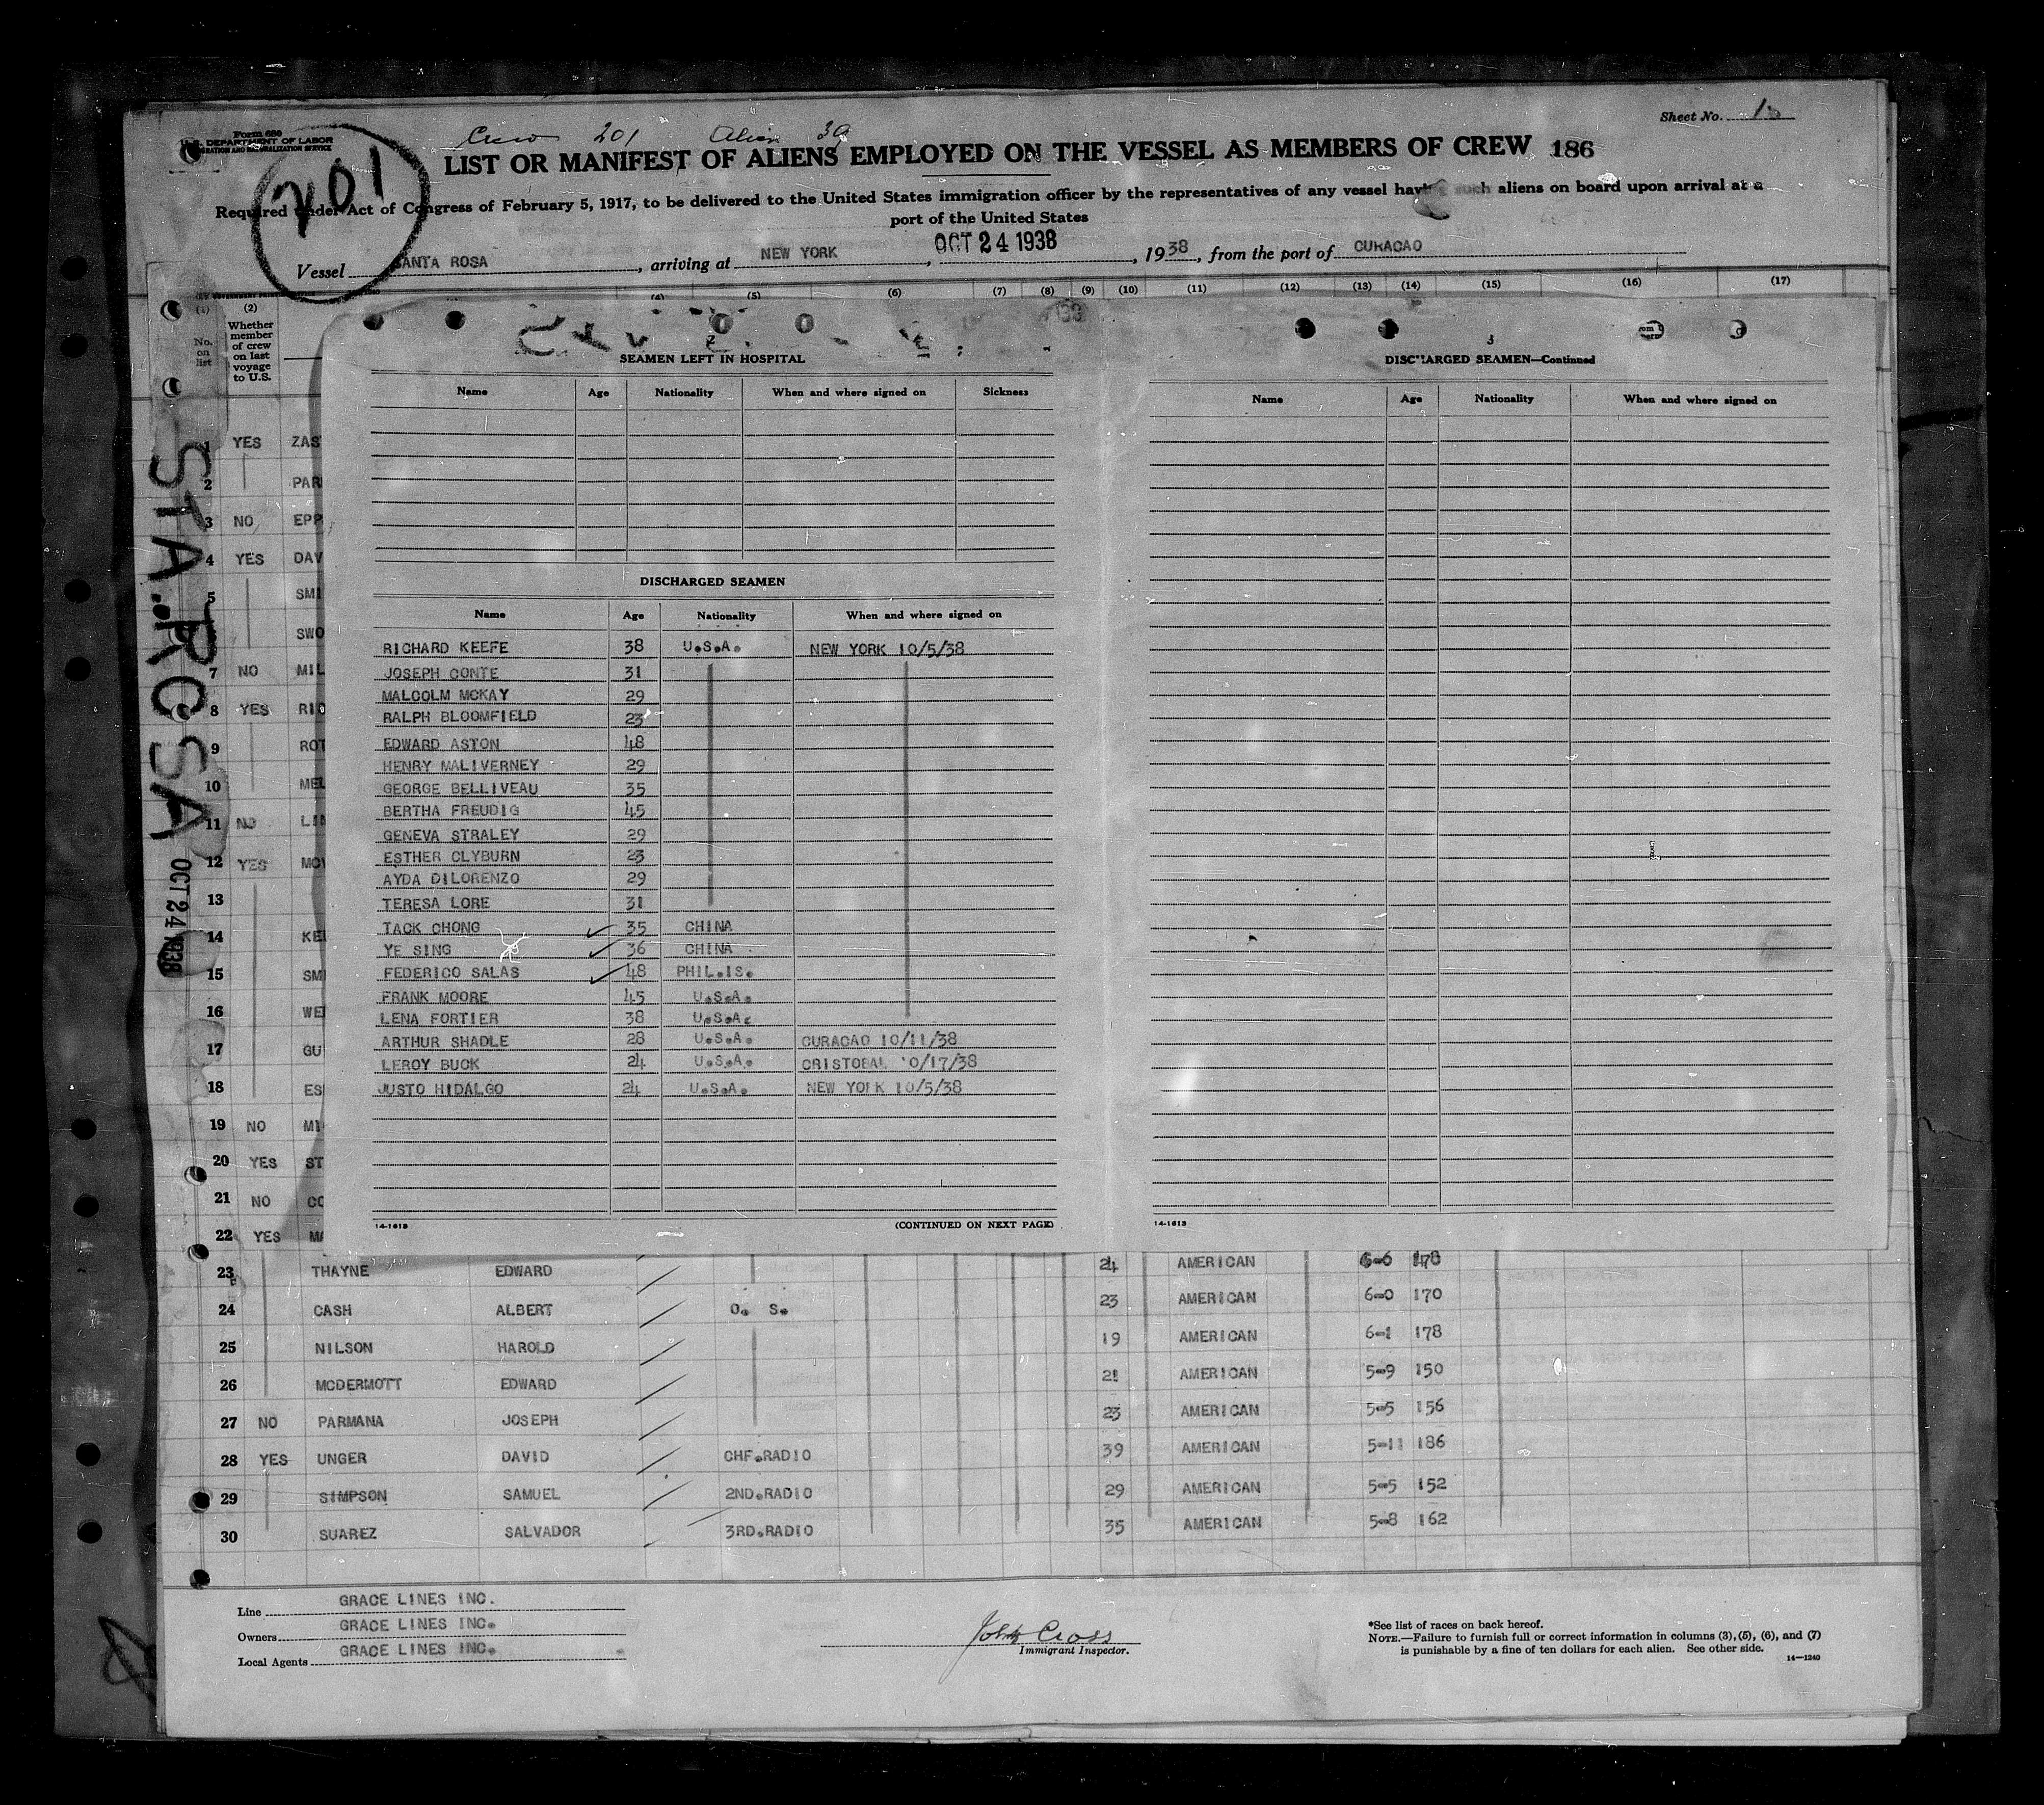 Form 680
U. S. DEPARTMENT OF LABOR
IMMIGRATION AND NATURALIZATION SERVICE
201
Crew 201 Alien 39
Sheet No.
LIST OR MANIFEST OF ALIENS EMPLOYED ON THE VESSEL AS MEMBERS OF CREW 186
Required under Act of Congress of February 5, 1917, to be delivered to the United States immigration officer by the representatives of any vessel having such aliens on board upon arrival at a
port of the United States
Vessel SANTA ROSA, arriving at NEW YORK, OCT 24 1938, 1938, from the port of CURACAO
(1) (2) (4) (5) (6) (7) (8) (9) (10) (11) (12) (13) (14) (15) (16) (17)
No. on list
Whether member of crew on last voyage to U.S.
STA. ROSA
OCT 24 1938
2
SEAMEN LEFT IN HOSPITAL
Name Age Nationality When and where signed on Sickness
DISCHARGED SEAMEN
Name Age Nationality When and where signed on
RICHARD KEEFE 38 U.S.A. NEW YORK 10/5/38
JOSEPH CONTE 31
MALCOLM MCKAY 29
RALPH BLOOMFIELD 23
EDWARD ASTON 48
HENRY MALIVERNEY 29
GEORGE BELLIVEAU 35
BERTHA FREUDIG 45
GENEVA STRALEY 29
ESTHER CLYBURN 23
AYDA DILORENZO 29
TERESA LORE 31
TACK CHONG 35 CHINA
YE SING 36 CHINA
FEDERICO SALAS 48 PHIL.IS.
FRANK MOORE 45 U.S.A.
LENA FORTIER 38 U.S.A.
ARTHUR SHADLE 28 U.S.A. CURACAO 10/11/38
LEROY BUCK 24 U.S.A. CRISTOBAL 10/17/38
JUSTO HIDALGO 24 U.S.A. NEW YORK 10/5/38
14-1613 (CONTINUED ON NEXT PAGE)
3
DISCHARGED SEAMEN—Continued
Name Age Nationality When and where signed on
14-1613
1 YES ZAS
2 PAR
3 NO EPP
4 YES DAV
5 SMI
SWO
7 NO MIL
8 YES RIC
9 ROT
10 MEL
11 NO LIN
12 YES MOY
13
14 KEL
15 SM
16 WE
17 GU
18 ES
19 NO MI
20 YES ST
21 NO CO
22 YES MA
23 THAYNE EDWARD 24 AMERICAN 6-0 178
24 CASH ALBERT O. S. 23 AMERICAN 6-0 170
25 NILSON HAROLD 19 AMERICAN 6-1 178
26 MCDERMOTT EDWARD 21 AMERICAN 5-9 150
27 NO PARMANA JOSEPH 23 AMERICAN 5-5 156
28 YES UNGER DAVID CHF.RADIO 39 AMERICAN 5-11 186
29 SIMPSON SAMUEL 2ND.RADIO 29 AMERICAN 5-5 152
30 SUAREZ SALVADOR 3RD.RADIO 35 AMERICAN 5-8 162
Line GRACE LINES INC.
Owners GRACE LINES INC.
Local Agents GRACE LINES INC.
John Cross
Immigrant Inspector.
*See list of races on back hereof.
NOTE.—Failure to furnish full or correct information in columns (3), (5), (6), and (7)
is punishable by a fine of ten dollars for each alien. See other side.
14—1240